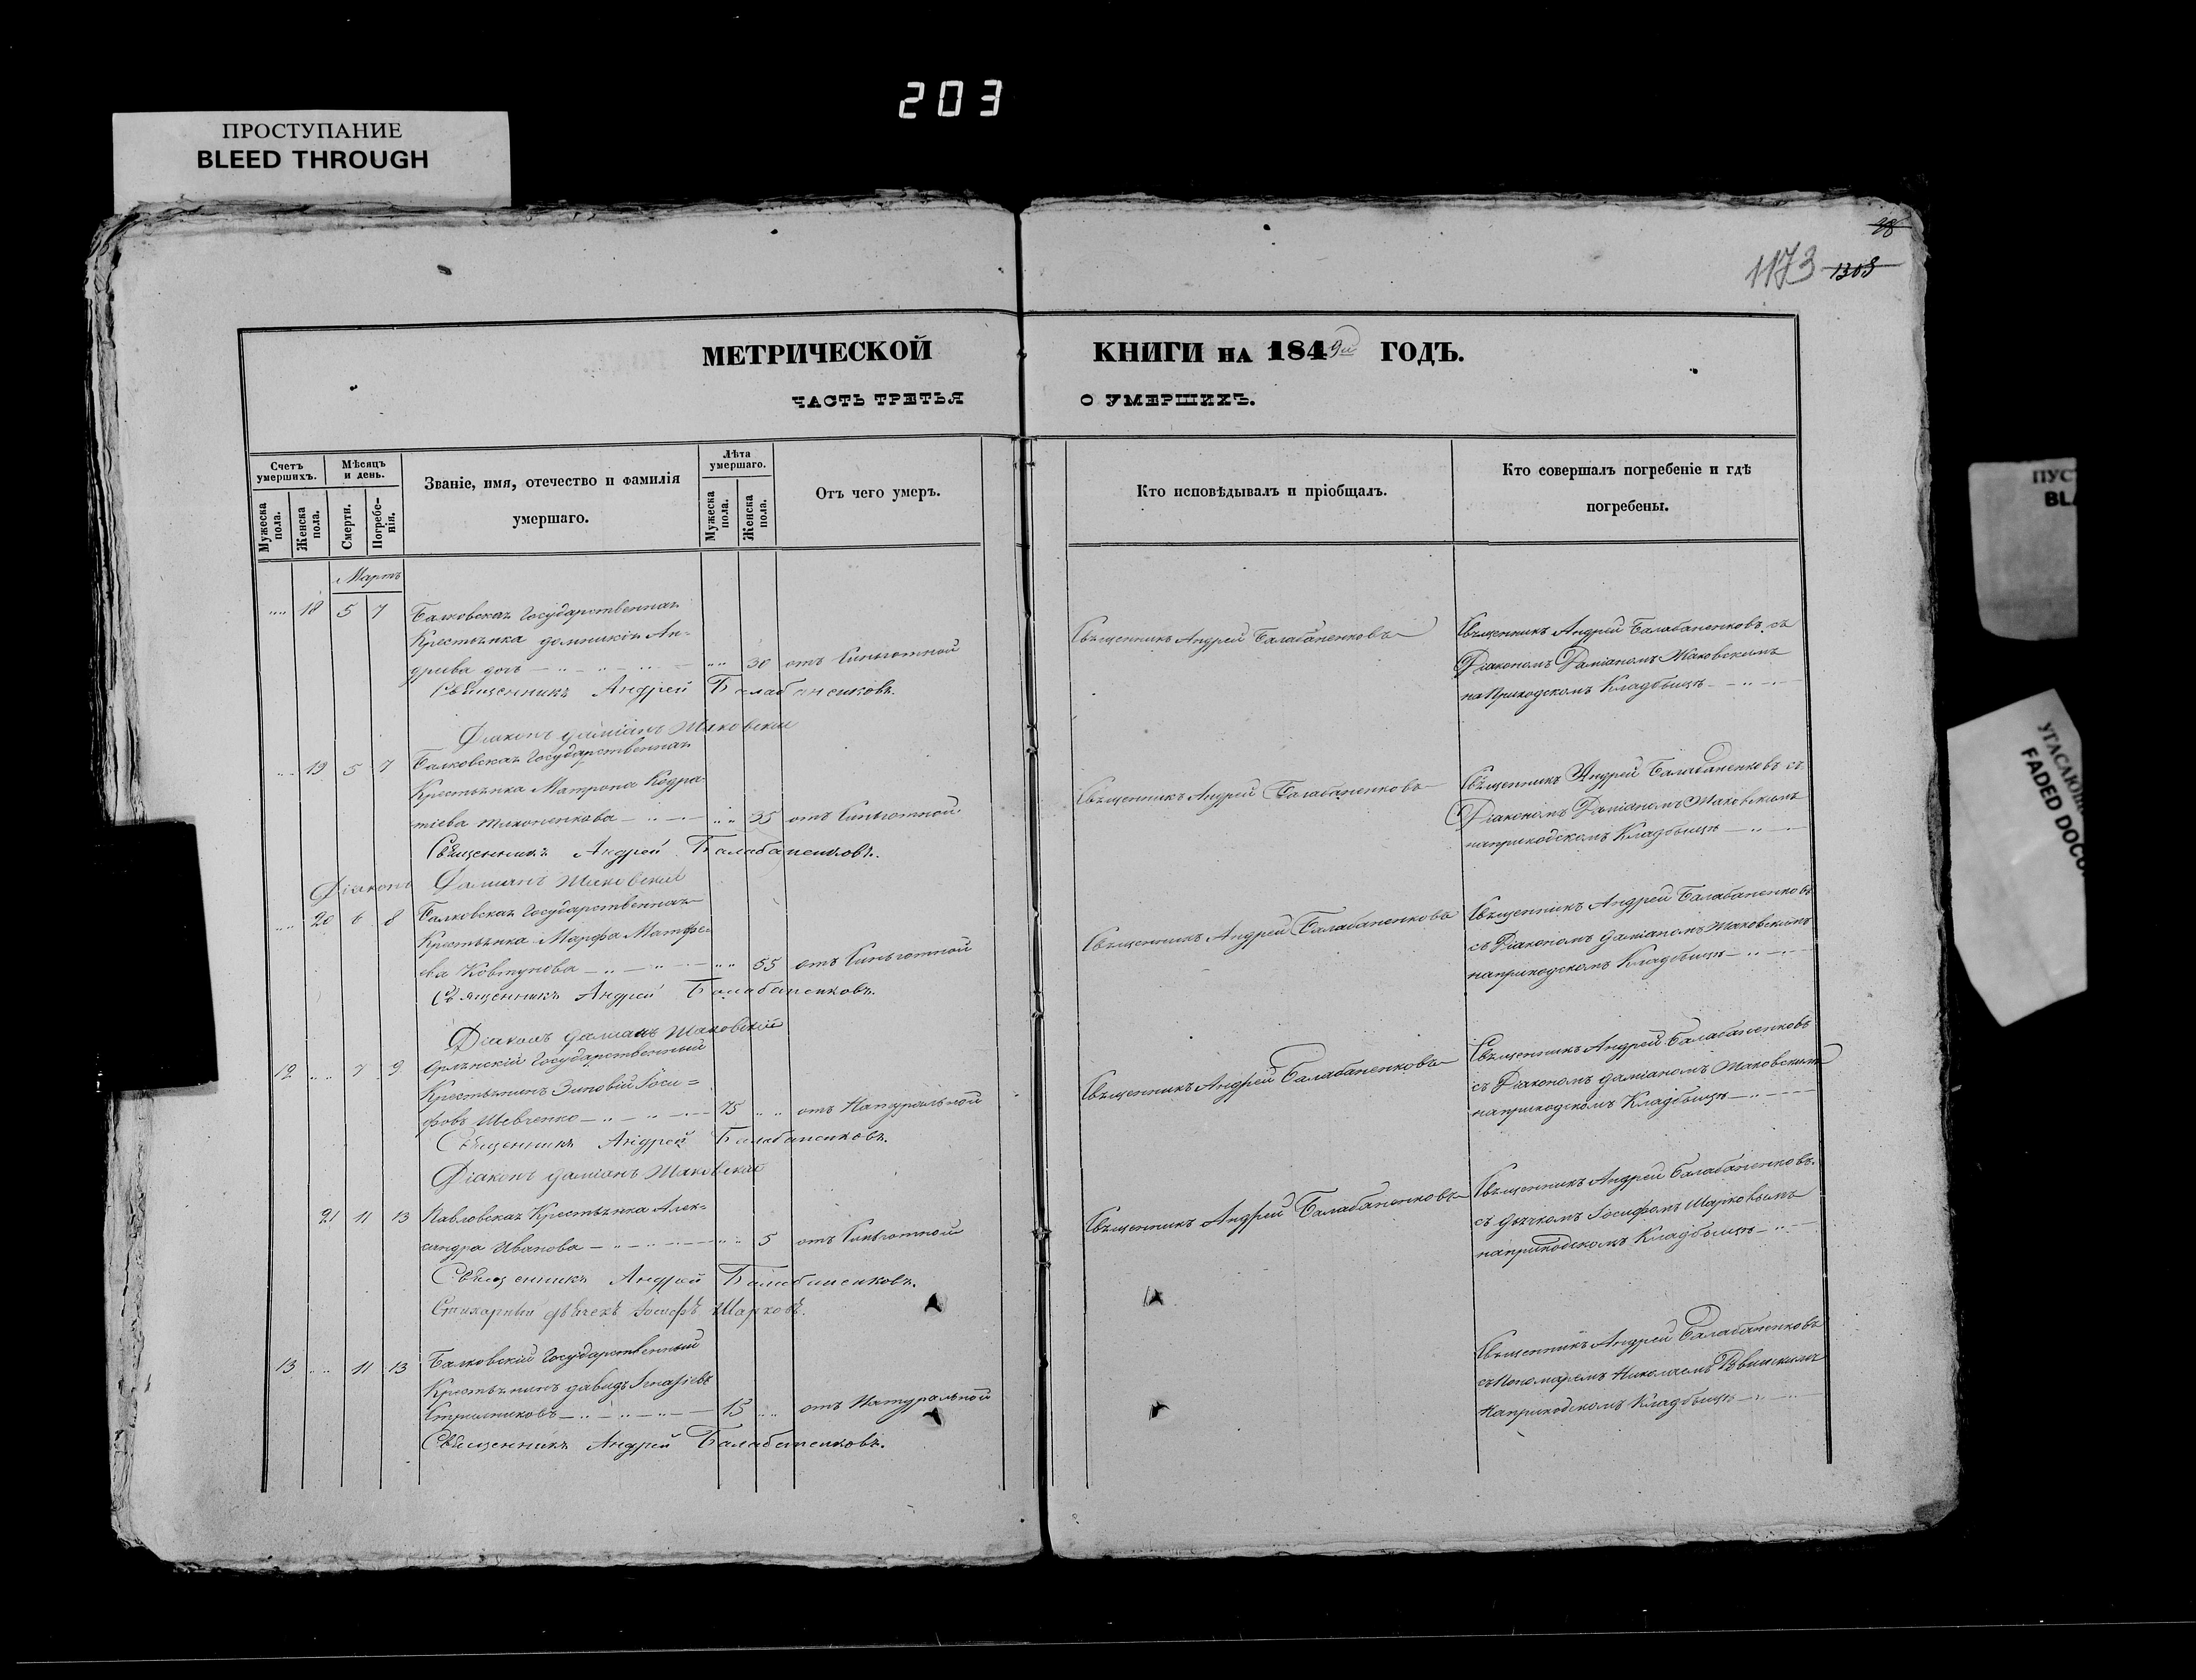 203
ПРОСТУПАНИЕ
BLEED THROUGH
98
1173 1308
МЕТРИЧЕСКОЙ КНИГИ НА 1849й ГОДЪ.
ЧАСТЬ ТРЕТЬЯ О УМЕРШИХЪ.
Счетъ умершихъ.
Мѣсяцъ и день.
Званіе, имя, отечество и фамилія умершаго.
Лѣта умершаго.
Отъ чего умеръ.
Кто исповѣдывалъ и пріобщалъ.
Кто совершалъ погребеніе и гдѣ погребены.
Мужеска пола.
Женска пола.
Смерти.
Погребенія.
Мужеска пола.
Женска пола.
Мартъ
18 5 7 Балковская Государственная
Крестьянка Ан=
дрѣева дочь 30 отъ
Священникъ Андрей Балабаненковъ.
Діаконъ Даміанъ Маковскій
Священникъ Андрей Балабаненковъ
Священникъ Андрей Балабаненковъ съ
Діакономъ Даміаномъ Маковскимъ
на Приходскомъ Кладбищѣ
19 5 7 Балковская Государственная
Крестьянка Матрона Кодра-
тіева 35 отъ
Священникъ Андрей Балабаненковъ.
Діаконъ Даміанъ Маковскій
Священникъ Андрей Балабаненковъ
Священникъ Андрей Балабаненковъ съ
Діакономъ Даміаномъ Маковскимъ
на приходскомъ Кладбищѣ
20 6 8 Балковская Государственная
Крестьянка Марфа Матфѣ-
ева Ковтунова 55 отъ
Священникъ Андрей Балабаненковъ.
Діаконъ Даміанъ Маковскій
Священникъ Андрей Балабаненковъ
Священникъ Андрей Балабаненковъ
съ Діакономъ Даміаномъ Маковскимъ
на приходскомъ Кладбищѣ
12 7 9 Орлянскій Государственный
Крестьянинъ Зиновій Іоси=
фовъ Шевченко 75 отъ Натуральной
Священникъ Андрей Балабаненковъ.
Діаконъ Даміанъ Маковскій
Священникъ Андрей Балабаненковъ
Священникъ Андрей Балабаненковъ
съ Діакономъ Даміаномъ Маковскимъ
на приходскомъ Кладбищѣ
21 11 13 Павловская Крестьянка Алек=
сандра Иванова 5 отъ
Священникъ Андрей Балабаненковъ.
Стихарный дьячекъ Іосифъ Шарковъ.
Священникъ Андрей Балабаненковъ
Священникъ Андрей Балабаненковъ
съ дьячкомъ Іосифомъ Шарковымъ
на приходскомъ Кладбищѣ
13 11 13 Балковскій Государственный
Крестьянинъ Давидъ Игнатіевъ
15 отъ Натуральной
Священникъ Андрей Балабаненковъ.
Священникъ Андрей Балабаненковъ
съ Пономаремъ Николаемъ
на приходскомъ Кладбищѣ
ПУС
BLA
УГАСАЮЩ
FADED DOCU